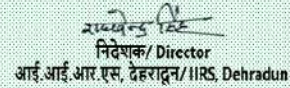 राघवेन्द्र सिंह
निदेशक/ Director
आई.आई.आर.एस, देहरादून/IIRS, Dehradun